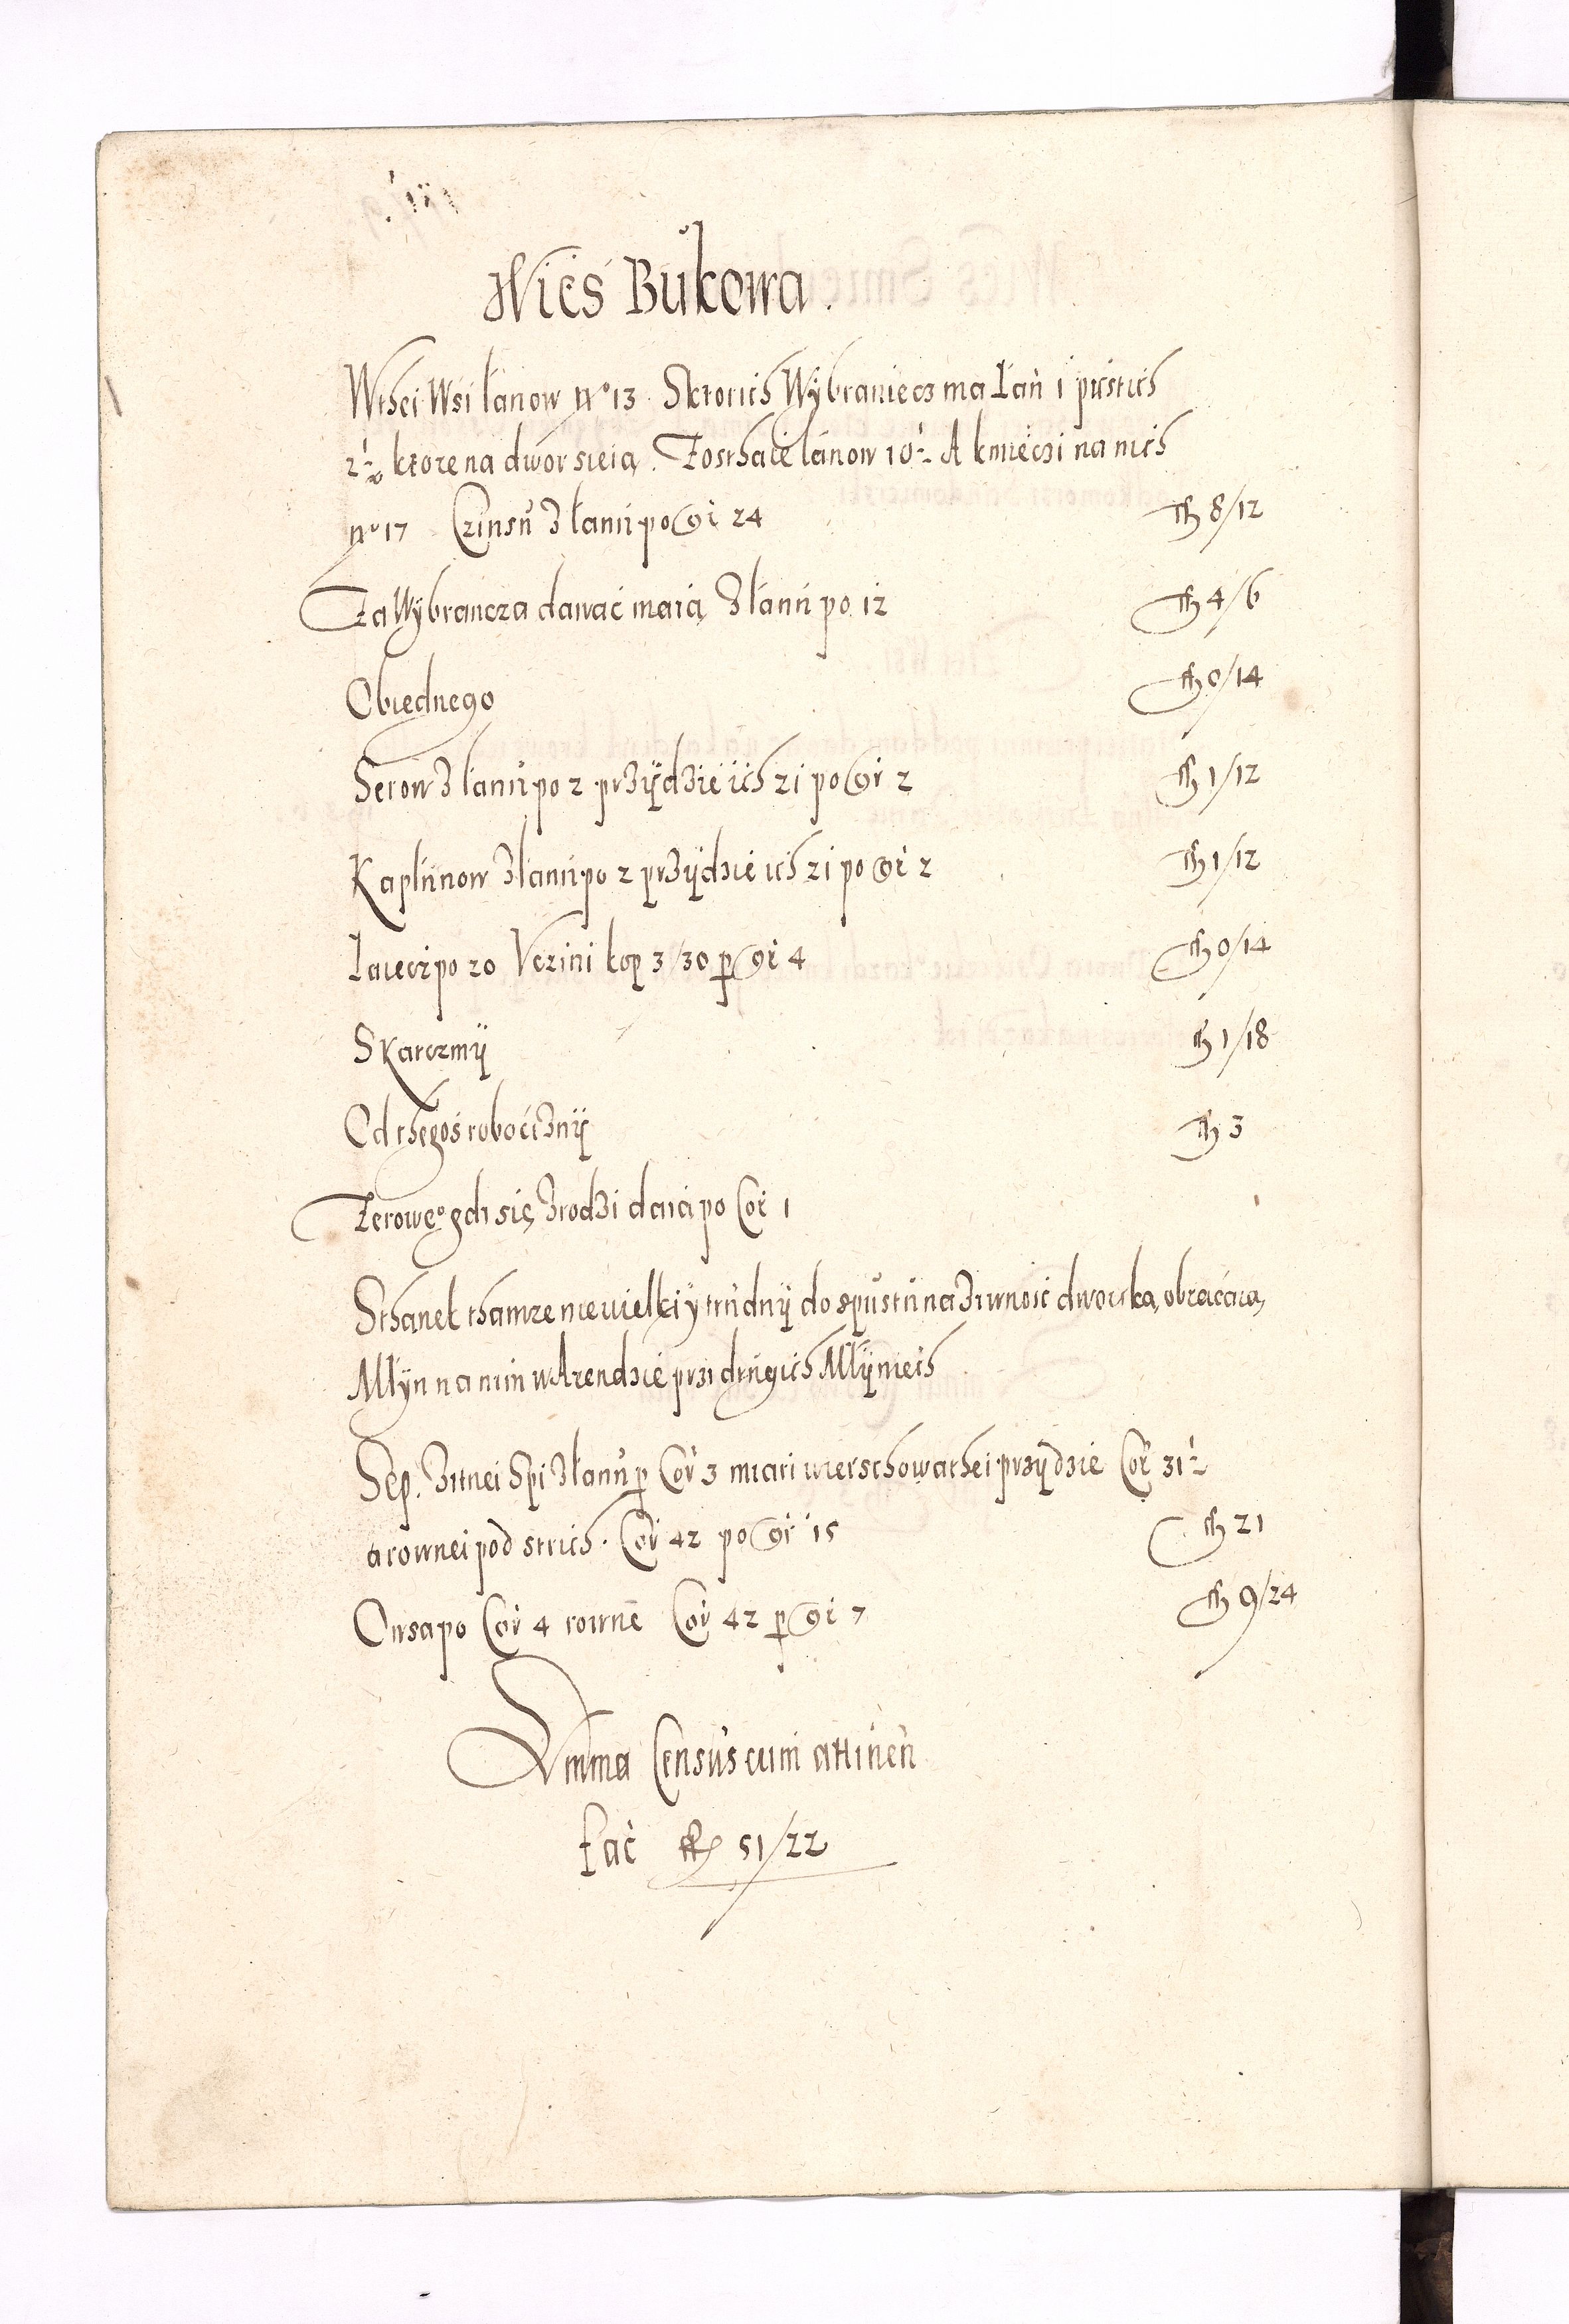 Wieś Bukowa.
Wthei Wsi łanow nº 13 Sktorich Wÿbraniecz ma Łan 1 pustich
2½ ktore na dwor sieią. Zosthaie łanow 10½ A kmieczi na nich
nº 17 Czinsu Z łanu po Gr 24 fl 8/12
Za Wÿbrancza dawać maią Z łanu po 12 fl 4/6
Obiednego fl 0/14
Serow Z łanu po 2 przÿdzie ich 21 po Gr 2 fl 1/12
Kapłunow Z łanu po 2 przÿdzie ich 21 po Gr 2 fl 1/12
Iaiecz po 20 Vczini kop 3/30 p Gr 4 fl 0/14
S Karczmÿ fl 1/18
Od thegoś roboćiznÿ fl 3
Zeroweº gdi się Zrodzi daią po Cor 1
Sthauek thamze niewielki y trudnÿ do spustu na Ziwność dworską obracaią
Młÿn na nim w Arendzie przi drugich Młÿniech
Sep. Zitnei Spi Z łanu p Cor 3 miari wierschowathei przÿdzie Cor 31½
a rownei pod strich. Cor 42 po Gr 15 fl 21
Owsa po Cor 4 rowne Cor 42 p Gr 7 fl 9/24
Summa Census cum attinen
fac fl 51/22